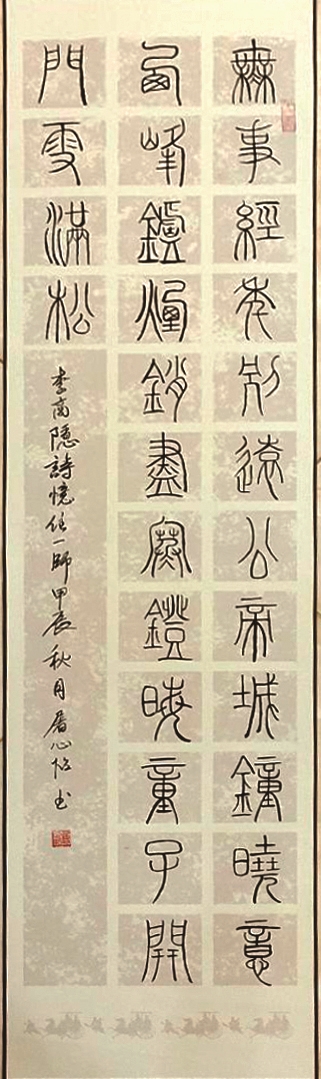 無事經年別遠公帝城鐘曉意
西峰鑪煙銷盡寒鐙晦童子開
門雪滿松
李商隱詩憶住一師甲辰秋月屠心怡书